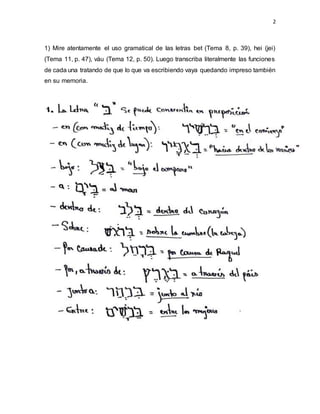 2
1) Mire atentamente el uso gramatical de las letras bet (Tema 8, p. 39), hei (jei)
(Tema 11, p. 47), váu (Tema 12, p. 50). Luego transcriba literalmente las funciones
de cada una tratando de que lo que va escribiendo vaya quedando impreso también
en su memoria.
1. La Letra "בְּ" Se puede convertir en preposición
- en (con matiz de tiempo): = "en el comienzo"
- en (con matiz de lugar): = "hacia dentro de los
- bajo: = "bajo el amparo"
- a: בְּיָם = al mar
- dentro de: בְּלֵב = dentro del corazón
- Sobre: בְּרֹאשׁ = sobre la cumbre (la cabeza)
- Por causa de: = por causa de Raquel
- Por, a través de: = a través del país
- Junto a: = junto al río
- Entre: = entre las mujeres